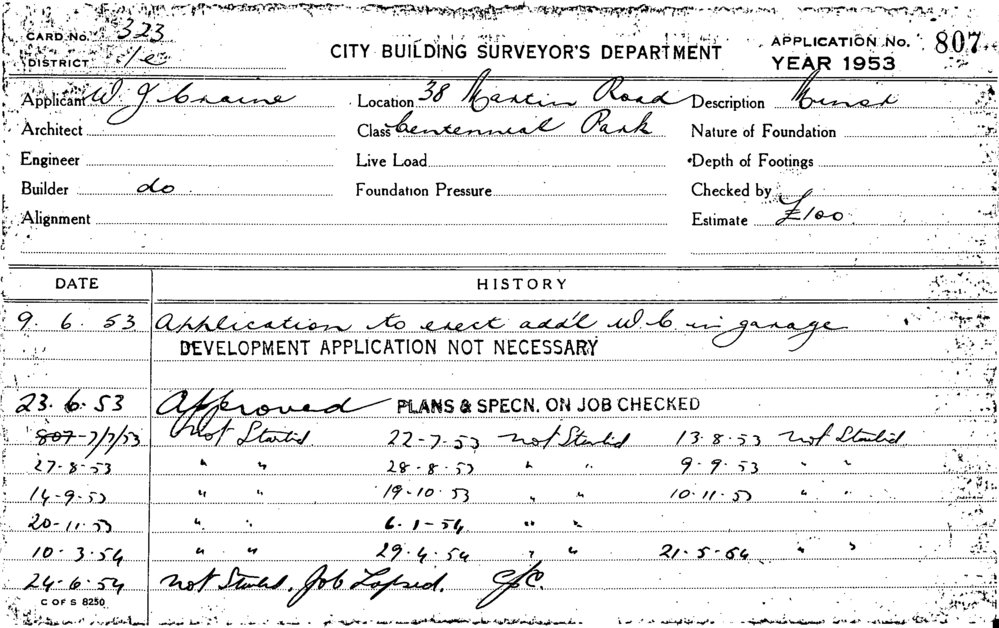 CARD No. 323
DISTRICT 1/e
CITY BUILDING SURVEYOR'S DEPARTMENT
APPLICATION No. 807
YEAR 1953
Applicant W J Craine Location 38 Martin Road Description Minor
Architect Class Centennial Park Nature of Foundation
Engineer Live Load Depth of Footings
Builder do Foundation Pressure Checked by
Alignment Estimate £100
DATE HISTORY
9. 6. 53 Application to erect add'l W C in garage
DEVELOPMENT APPLICATION NOT NECESSARY
23. 6. 53 Approved PLANS & SPECN. ON JOB CHECKED
807 - 7/7/53 Not Started 22-7-53 not Started 13-8-53 not Started
27-8-53 " " 28-8-53 " " 9-9-53 " "
14-9-53 " " 19-10-53 " " 10-11-53 " "
20-11-53 " " 6-1-54 " "
10-3-54 " " 29-4-54 " " 21-5-54 " "
24-6-54 not Started. Job Lapsed.
C OF S 8250